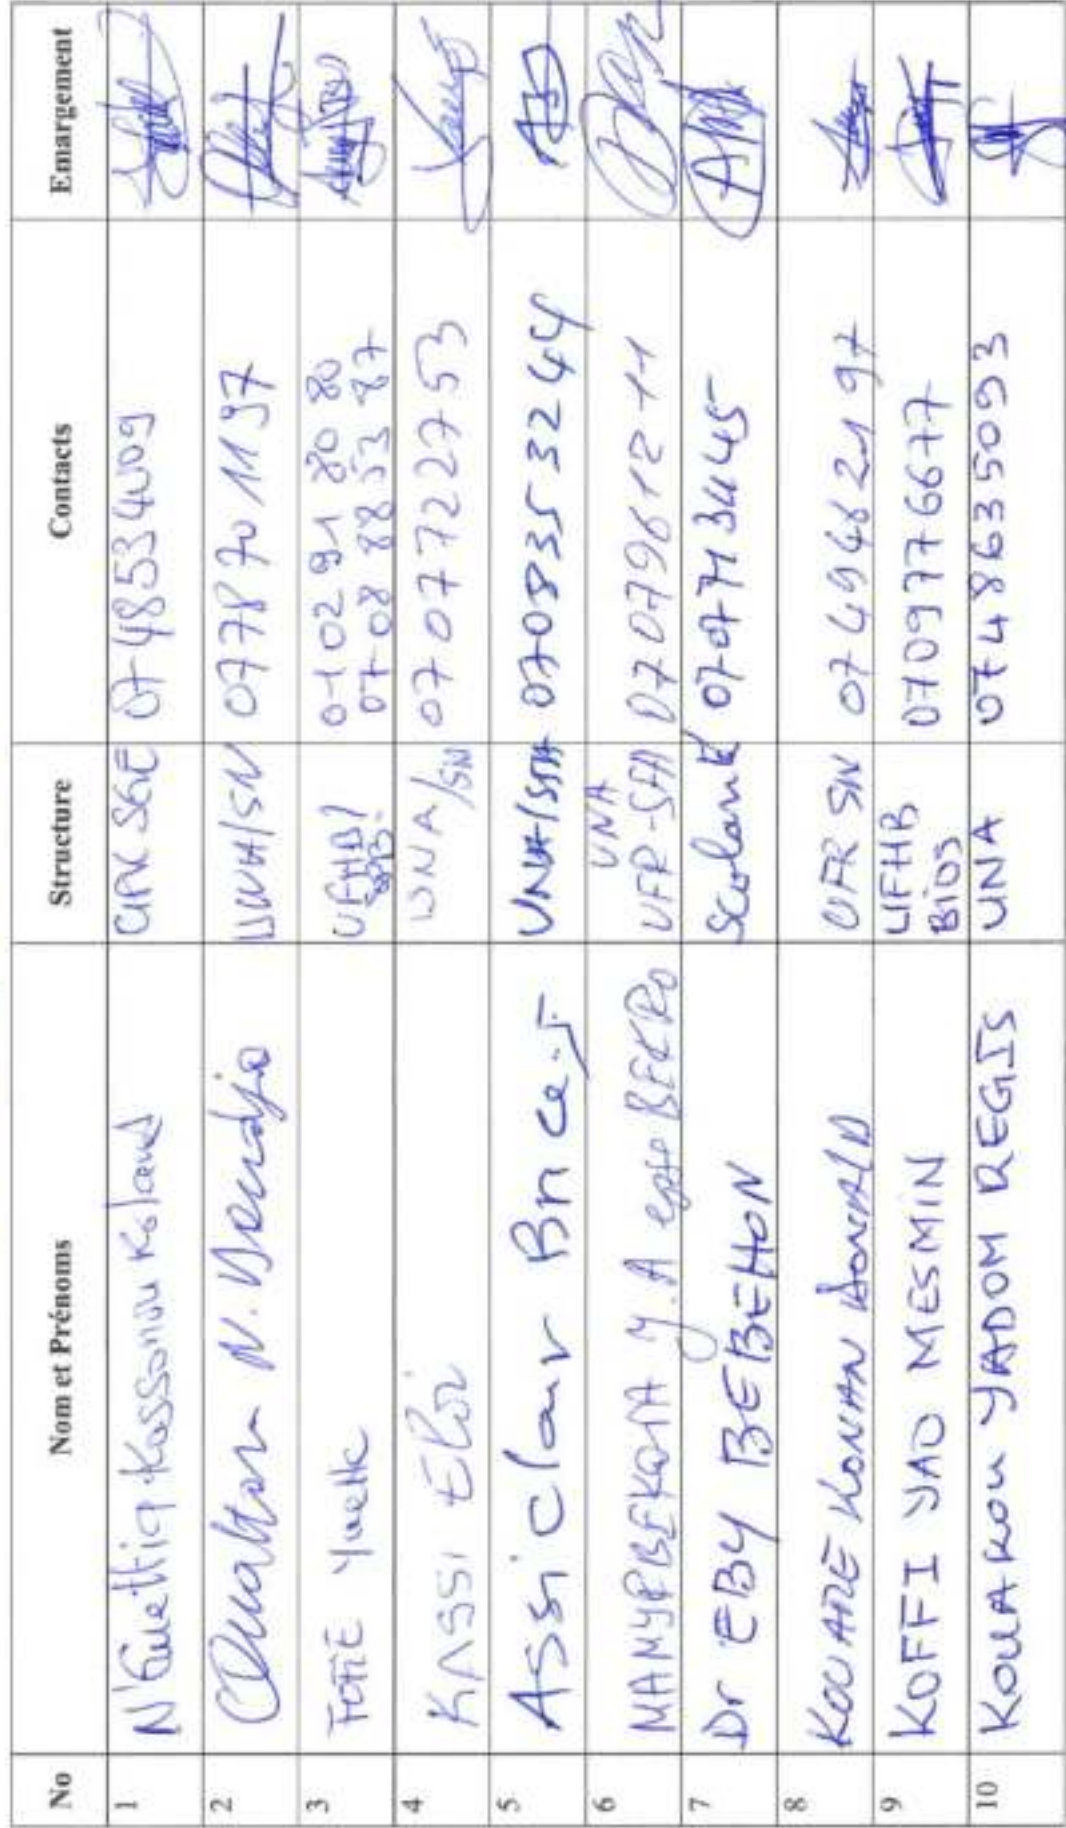 No Nom et Prénoms Structure Contacts Emargement
1 N'Guettia Kossonou Roland 07 48534009
2 Ouattara N. 0778701197
3 FOFIE Yvette UFHB/ 01 02 91 80 80
07 08 88 53 87
4 KASSI Eloi UNA/SN 0707722753
5 Assi Clair Brice.J UNA/STA 0708353244
6 MAMYRBEKOVA J.A epse BEKRO UNA
UFR-SFA 0707961211
7 Dr EBY BEBEHON Scolarité
8 KOUAME KONAN DONALD UFR SN 0749462197
9 KOFFI YAO MESMIN UFHB
BIOS 0709776677
10 KOUAKOU YADOM REGIS UNA 0748635093